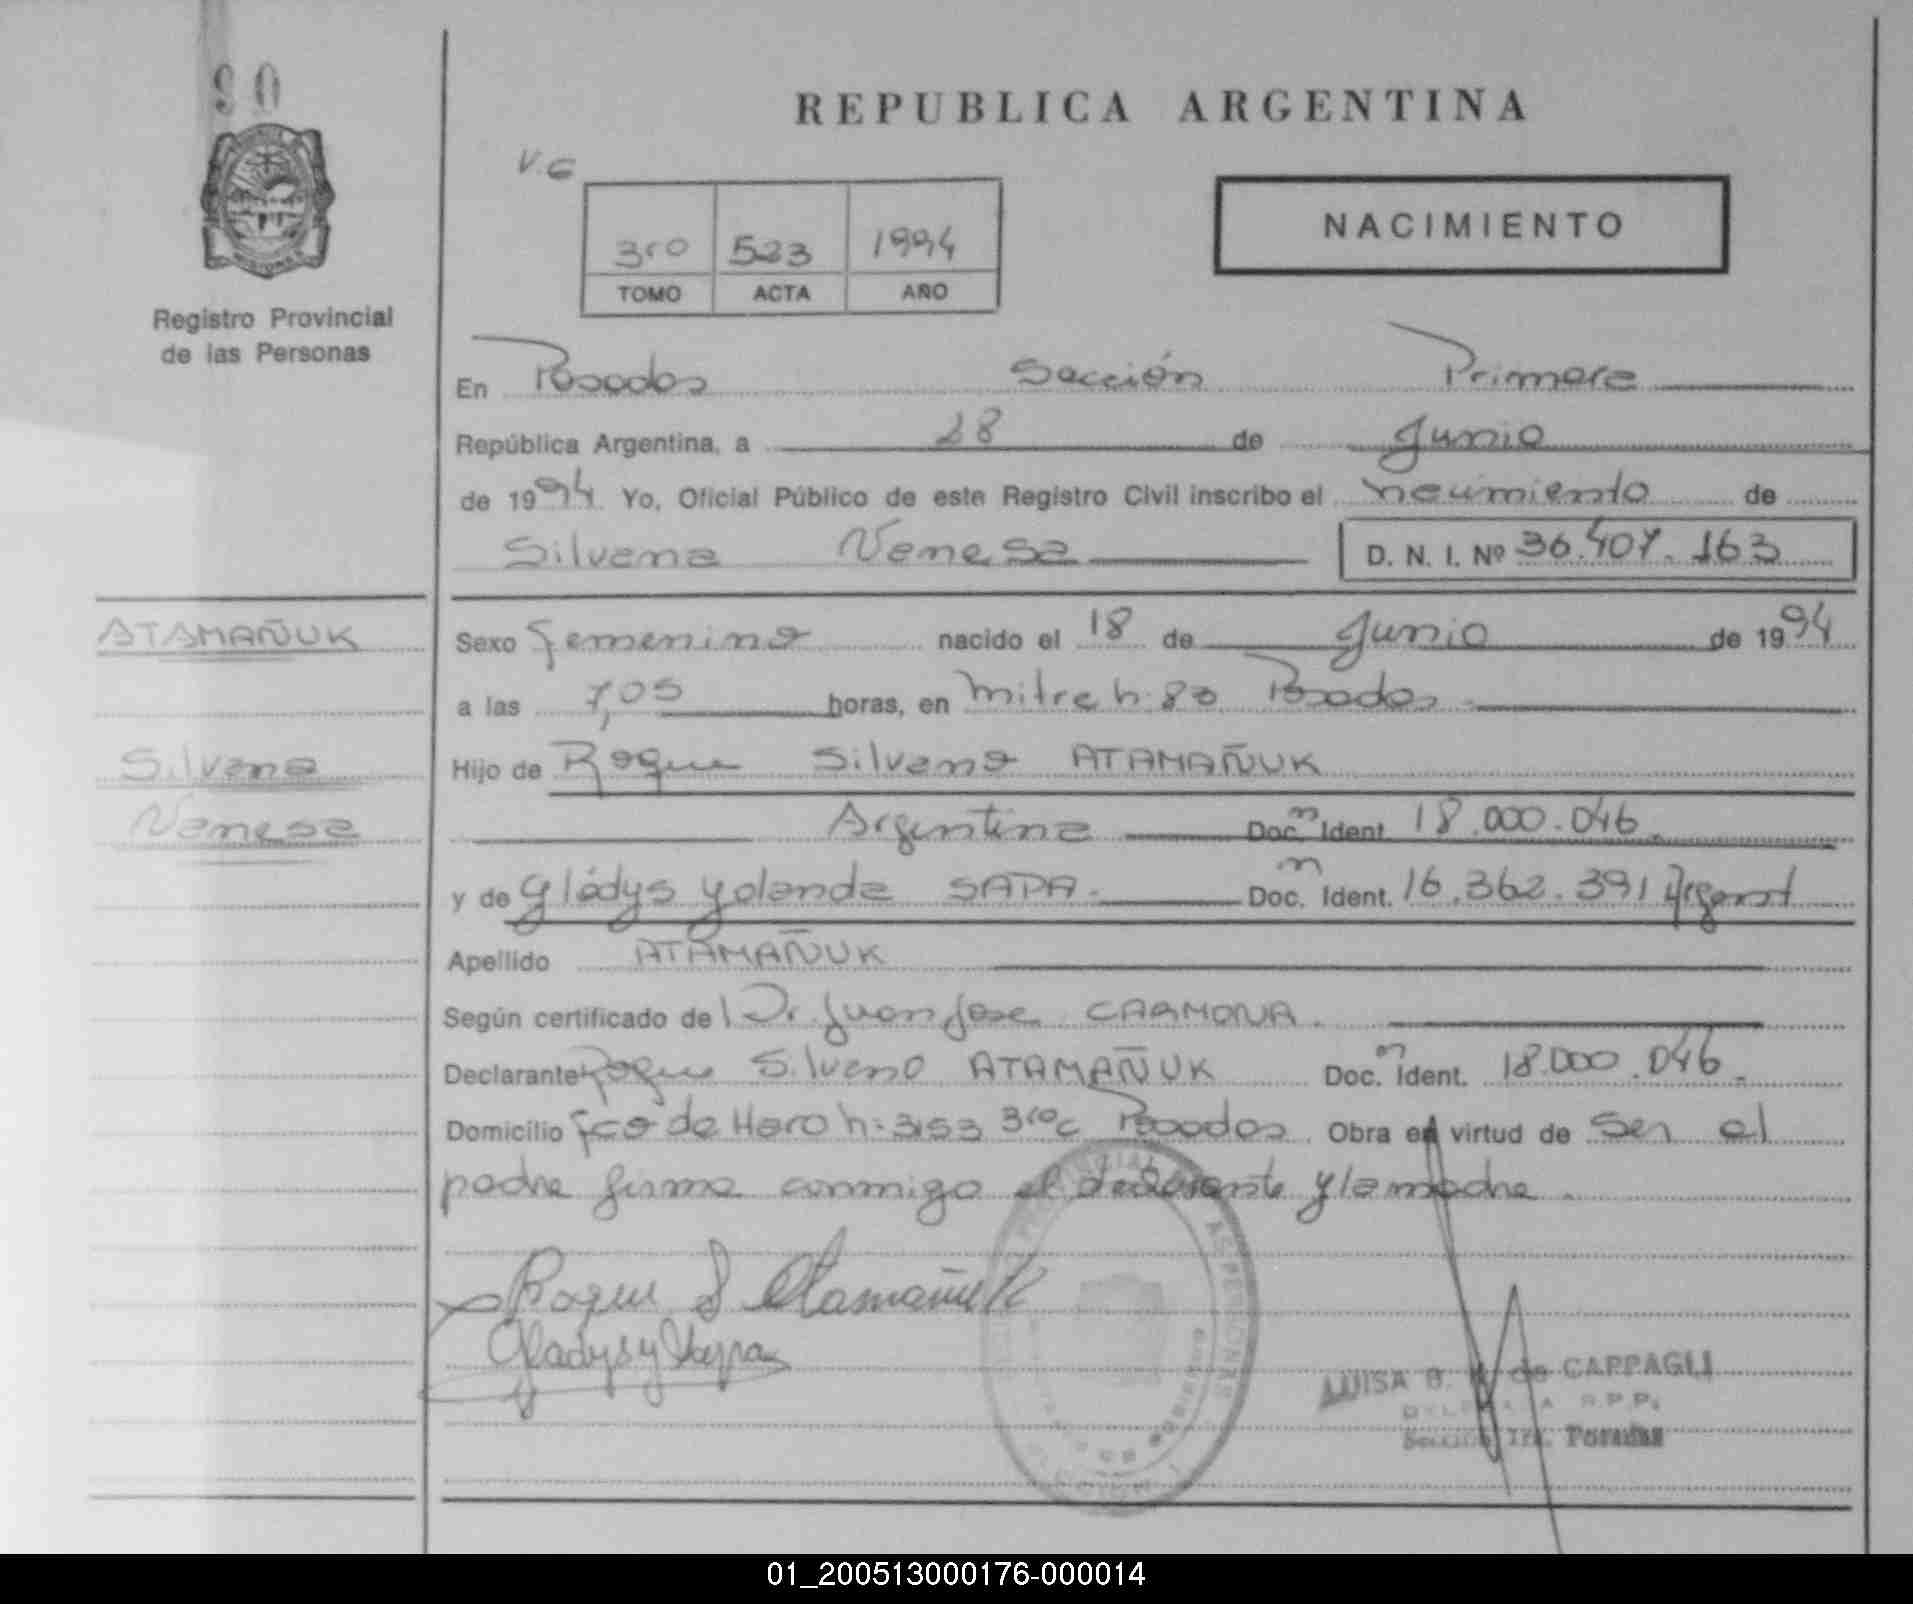 90
REPUBLICA ARGENTINA
V.G
NACIMIENTO
3ro 523 1994
TOMO ACTA AÑO
Registro Provincial
de las Personas
En Posadas Sección Primera
República Argentina, a 28 de Junio
de 1994 Yo, Oficial Público de este Registro Civil inscribo el nacimiento de
Silvana Vanesa D. N. I. Nº 36.407.163
ATAMAÑUK
Silvana
Vanesa
Sexo femenino nacido el 18 de Junio de 1994
a las 7,05 horas, en Mitre n: 80 Posadas
Hijo de Roque Silvano ATAMAÑUK
Argentina Doc. Ident. 18.000.046
y de Gladys Yolanda SAPA Doc. Ident. 16.362.391 Argent
Apellido ATAMAÑUK
Según certificado del Dr. Juan Jose CARMONA.
Declarante Roque Silvano ATAMAÑUK Doc. Ident. 18.000.046
Domicilio Fco de Haro n: 3153 3roc Posadas Obra en virtud de ser el
padre firma conmigo el declarante y la madre.
Roque S Atamañuk
Gladys y
LUISA B. de CAPPAGLI
DELEGADA R.P.P.
Sección 1ra. Posadas
01_200513000176-000014